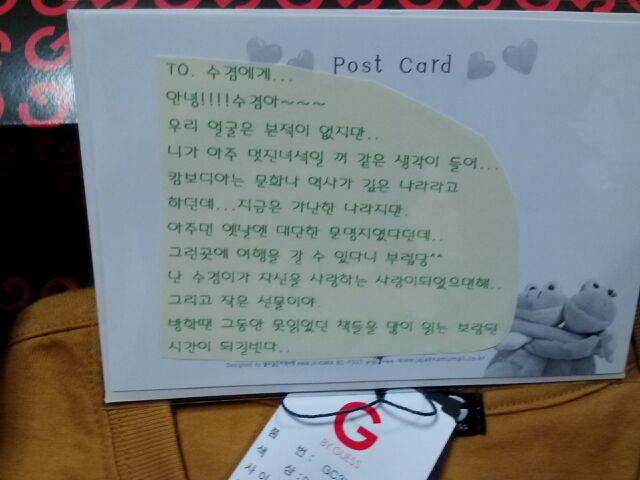 Post Card
TO. 수겸에게...
안녕!!!!수겸아~~~
우리 얼굴은 본적이 없지만..
니가 아주 멋진녀석일 꺼 같은 생각이 들어...
캄보디아는 문화나 역사가 깊은 나라라고
하던데...지금은 가난한 나라지만.
아주먼 옛날엔 대단한 문명지였다던데..
그런곳에 여행을 갈 수 있다니 부럽당^^
난 수겸이가 자신을 사랑하는 사람이되었으면해..
그리고 작은 선물이야.
방학땐 그동안 못읽었던 책들을 많이 읽는 보람된
시간이 되길빈다..
Designed by MADE IN KOREA www.jajaknamumall.co.kr
G
BY GUESS
품 번:
색 상:
사이